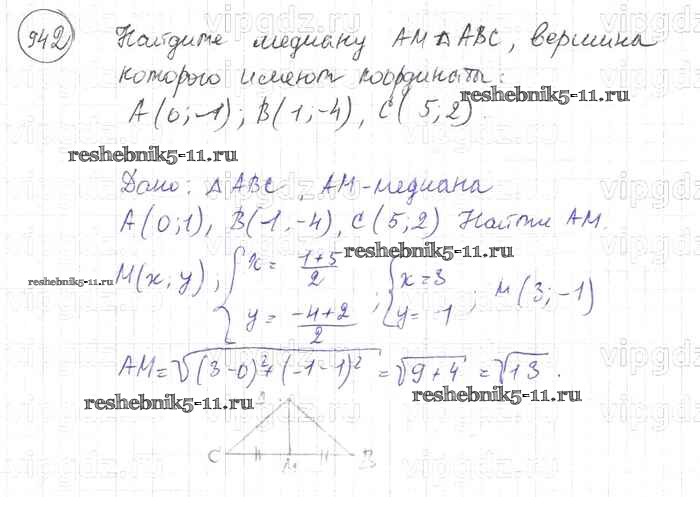 942 Найдите медиану AM △ ABC, вершина
которого имеют координаты:
reshebnik5-11.ru
A(0;-1); B(1;-4), C(5;2).
reshebnik5-11.ru
Дано: △ ABC, AM-медиана
A(0;1), B(-1,-4), C(5;2) Найти AM.
reshebnik5-11.ru
M(x;y), { x = 1+5/2 ; { x=3
reshebnik5-11.ru
y = -4+2/2 y=-1 ; M(3;-1)
AM=√(3-0)²+(-1-1)² = √9+4 = √13.
reshebnik5-11.ru
reshebnik5-11.ru
C M B
vipgdz.ru